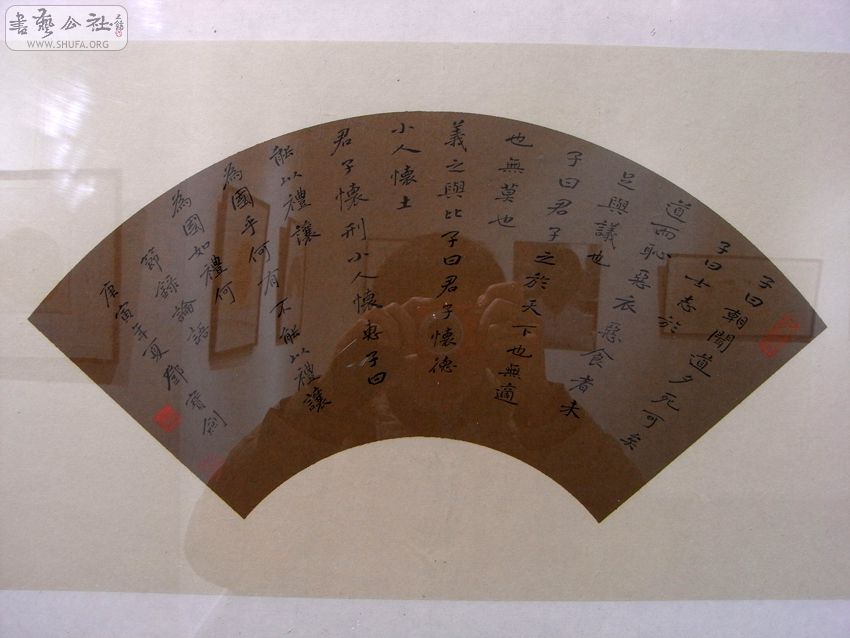 書藝公社
WWW.SHUFA.ORG
子曰朝聞道夕死可矣
子曰士志於
道而恥惡衣惡食者未
足與議也
子曰君子之於天下也無適
也無莫也
義之與比子曰君子懷德
小人懷土
君子懷刑小人懷惠子曰
能以禮讓
為國乎何有不能以禮讓
為國如禮何
節錄論語
庚寅年夏鄧寶劍